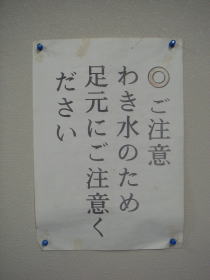 ◎ご注意
わき水のため
足元にご注意く
ださい